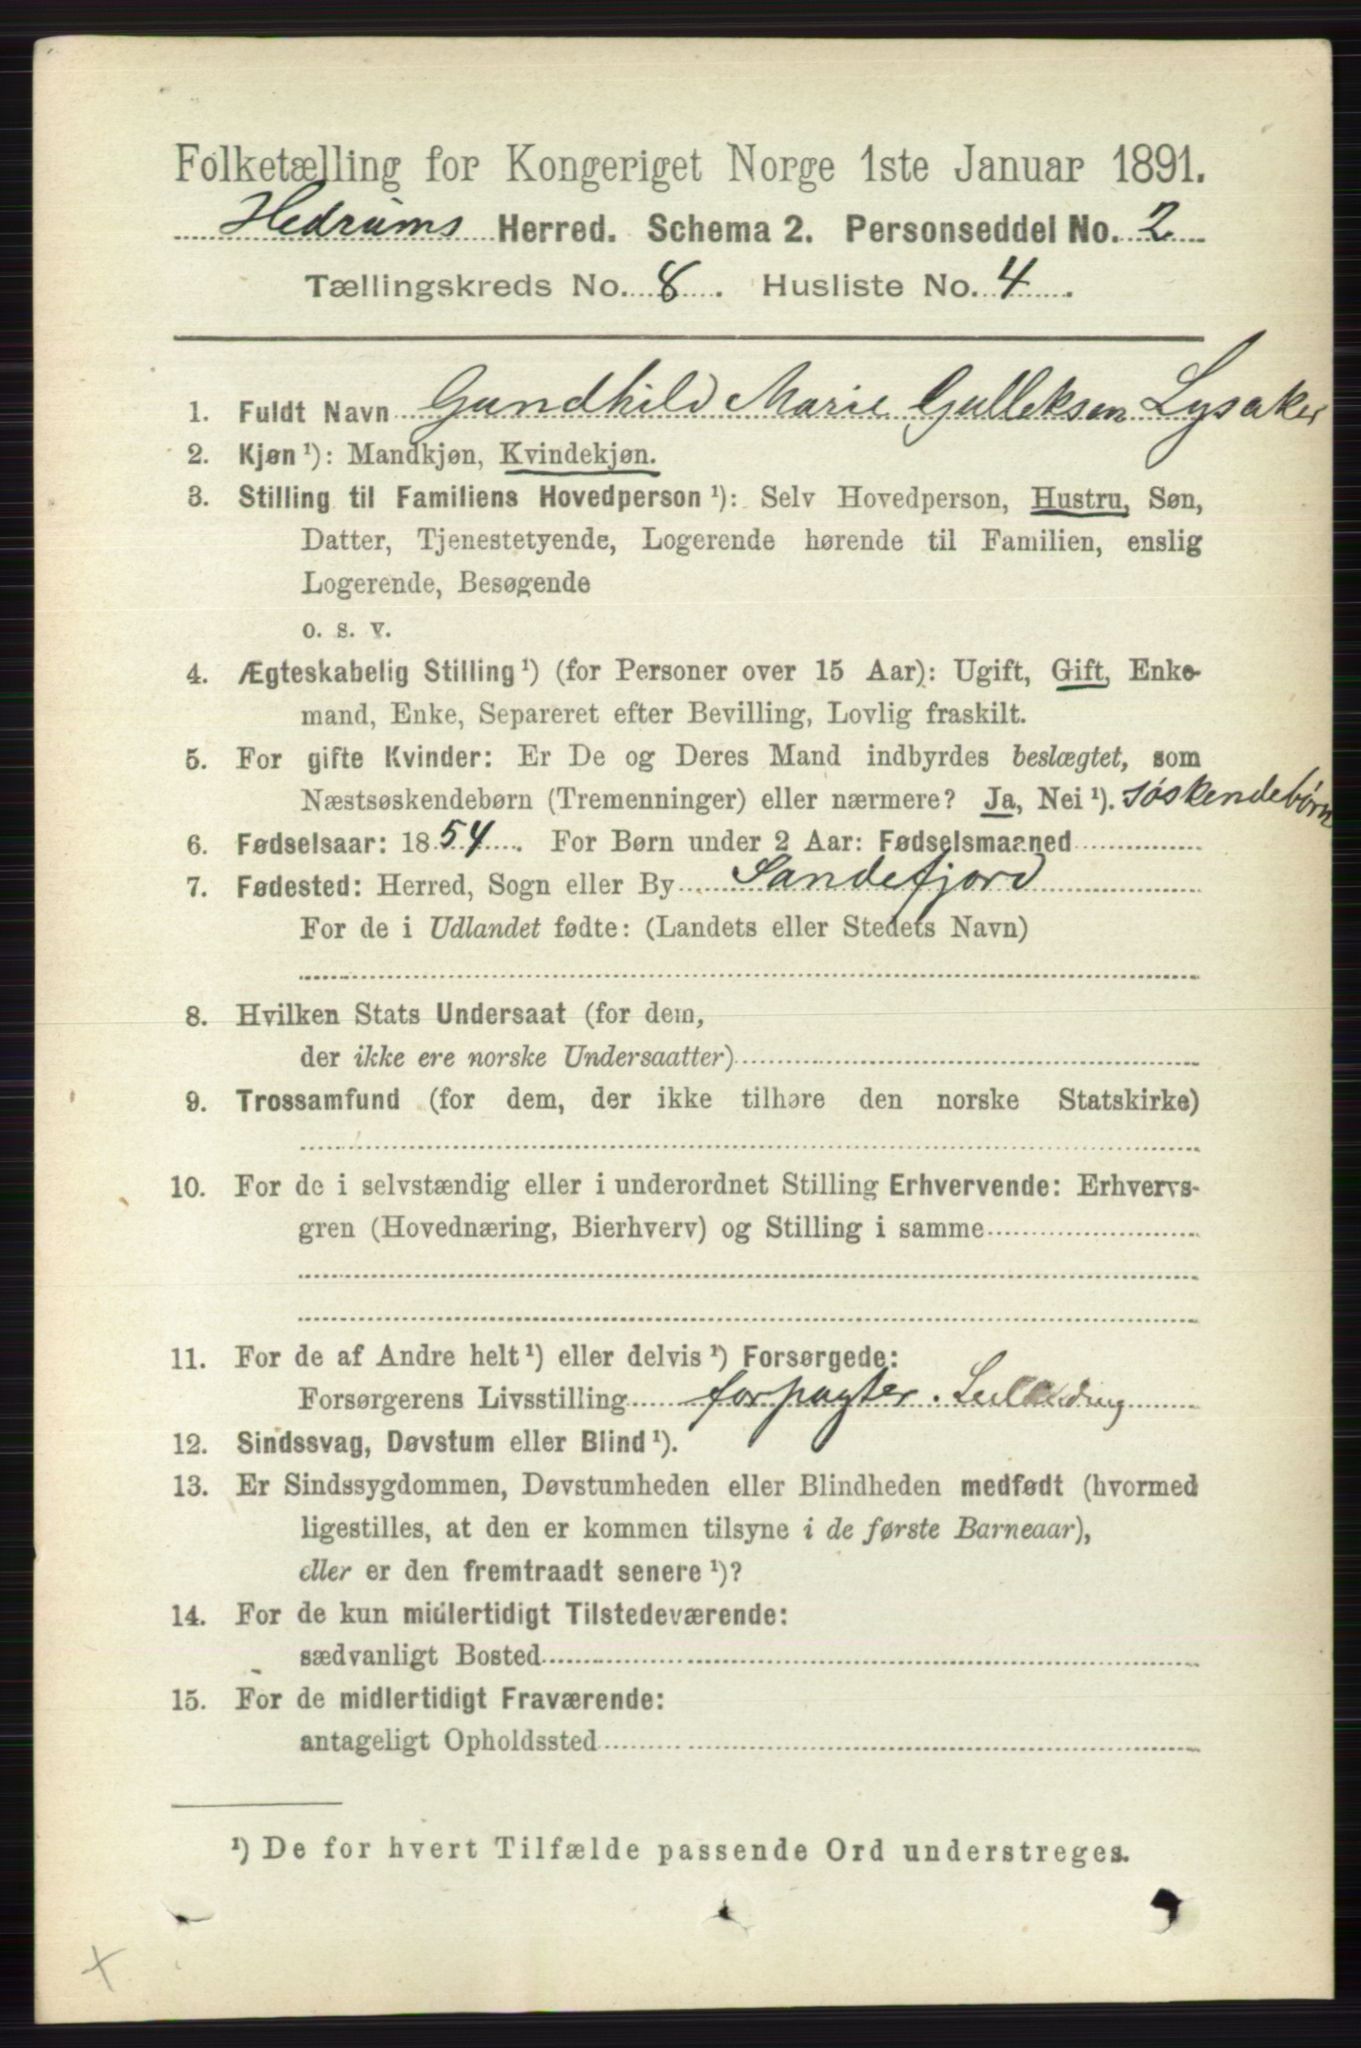 Folketælling for Kongeriget Norge 1ste Januar 1891.
Hedrums Herred. Schema 2. Personseddel No. 2
Tællingskreds No. 8. Husliste No. 4.
1. Fuldt Navn Gundhild Marie Gulleksen Lysaker
2. Kjøn ¹): Mandkjøn, Kvindekjøn.
3. Stilling til Familiens Hovedperson ¹): Selv Hovedperson, Hustru, Søn,
Datter, Tjenestetyende, Logerende hørende til Familien, enslig
Logerende, Besøgende
o. s. v.
4. Ægteskabelig Stilling ¹) (for Personer over 15 Aar): Ugift, Gift, Enke-
mand, Enke, Separeret efter Bevilling, Lovlig fraskilt.
5. For gifte Kvinder: Er De og Deres Mand indbyrdes beslægtet, som
Næstsøskendebørn (Tremenninger) eller nærmere? Ja, Nei ¹). søskendebørn
6. Fødselsaar: 1854. For Børn under 2 Aar: Fødselsmaaned
7. Fødested: Herred, Sogn eller By Sandefjord
For de i Udlandet fødte: (Landets eller Stedets Navn)
8. Hvilken Stats Undersaat (for dem,
der ikke ere norske Undersaatter)
9. Trossamfund (for dem, der ikke tilhøre den norske Statskirke)
10. For de i selvstændig eller i underordnet Stilling Erhvervende: Erhvervs-
gren (Hovednæring, Bierhverv) og Stilling i samme
11. For de af Andre helt ¹) eller delvis ¹) Forsørgede:
Forsørgerens Livsstilling forpagter.
12. Sindssvag, Døvstum eller Blind ¹).
13. Er Sindssygdommen, Døvstumheden eller Blindheden medfødt (hvormed
ligestilles, at den er kommen tilsyne i de første Barneaar),
eller er den fremtraadt senere ¹)?
14. For de kun midlertidigt Tilstedeværende:
sædvanligt Bosted
15. For de midlertidigt Fraværende:
antageligt Opholdssted
¹) De for hvert Tilfælde passende Ord understreges.